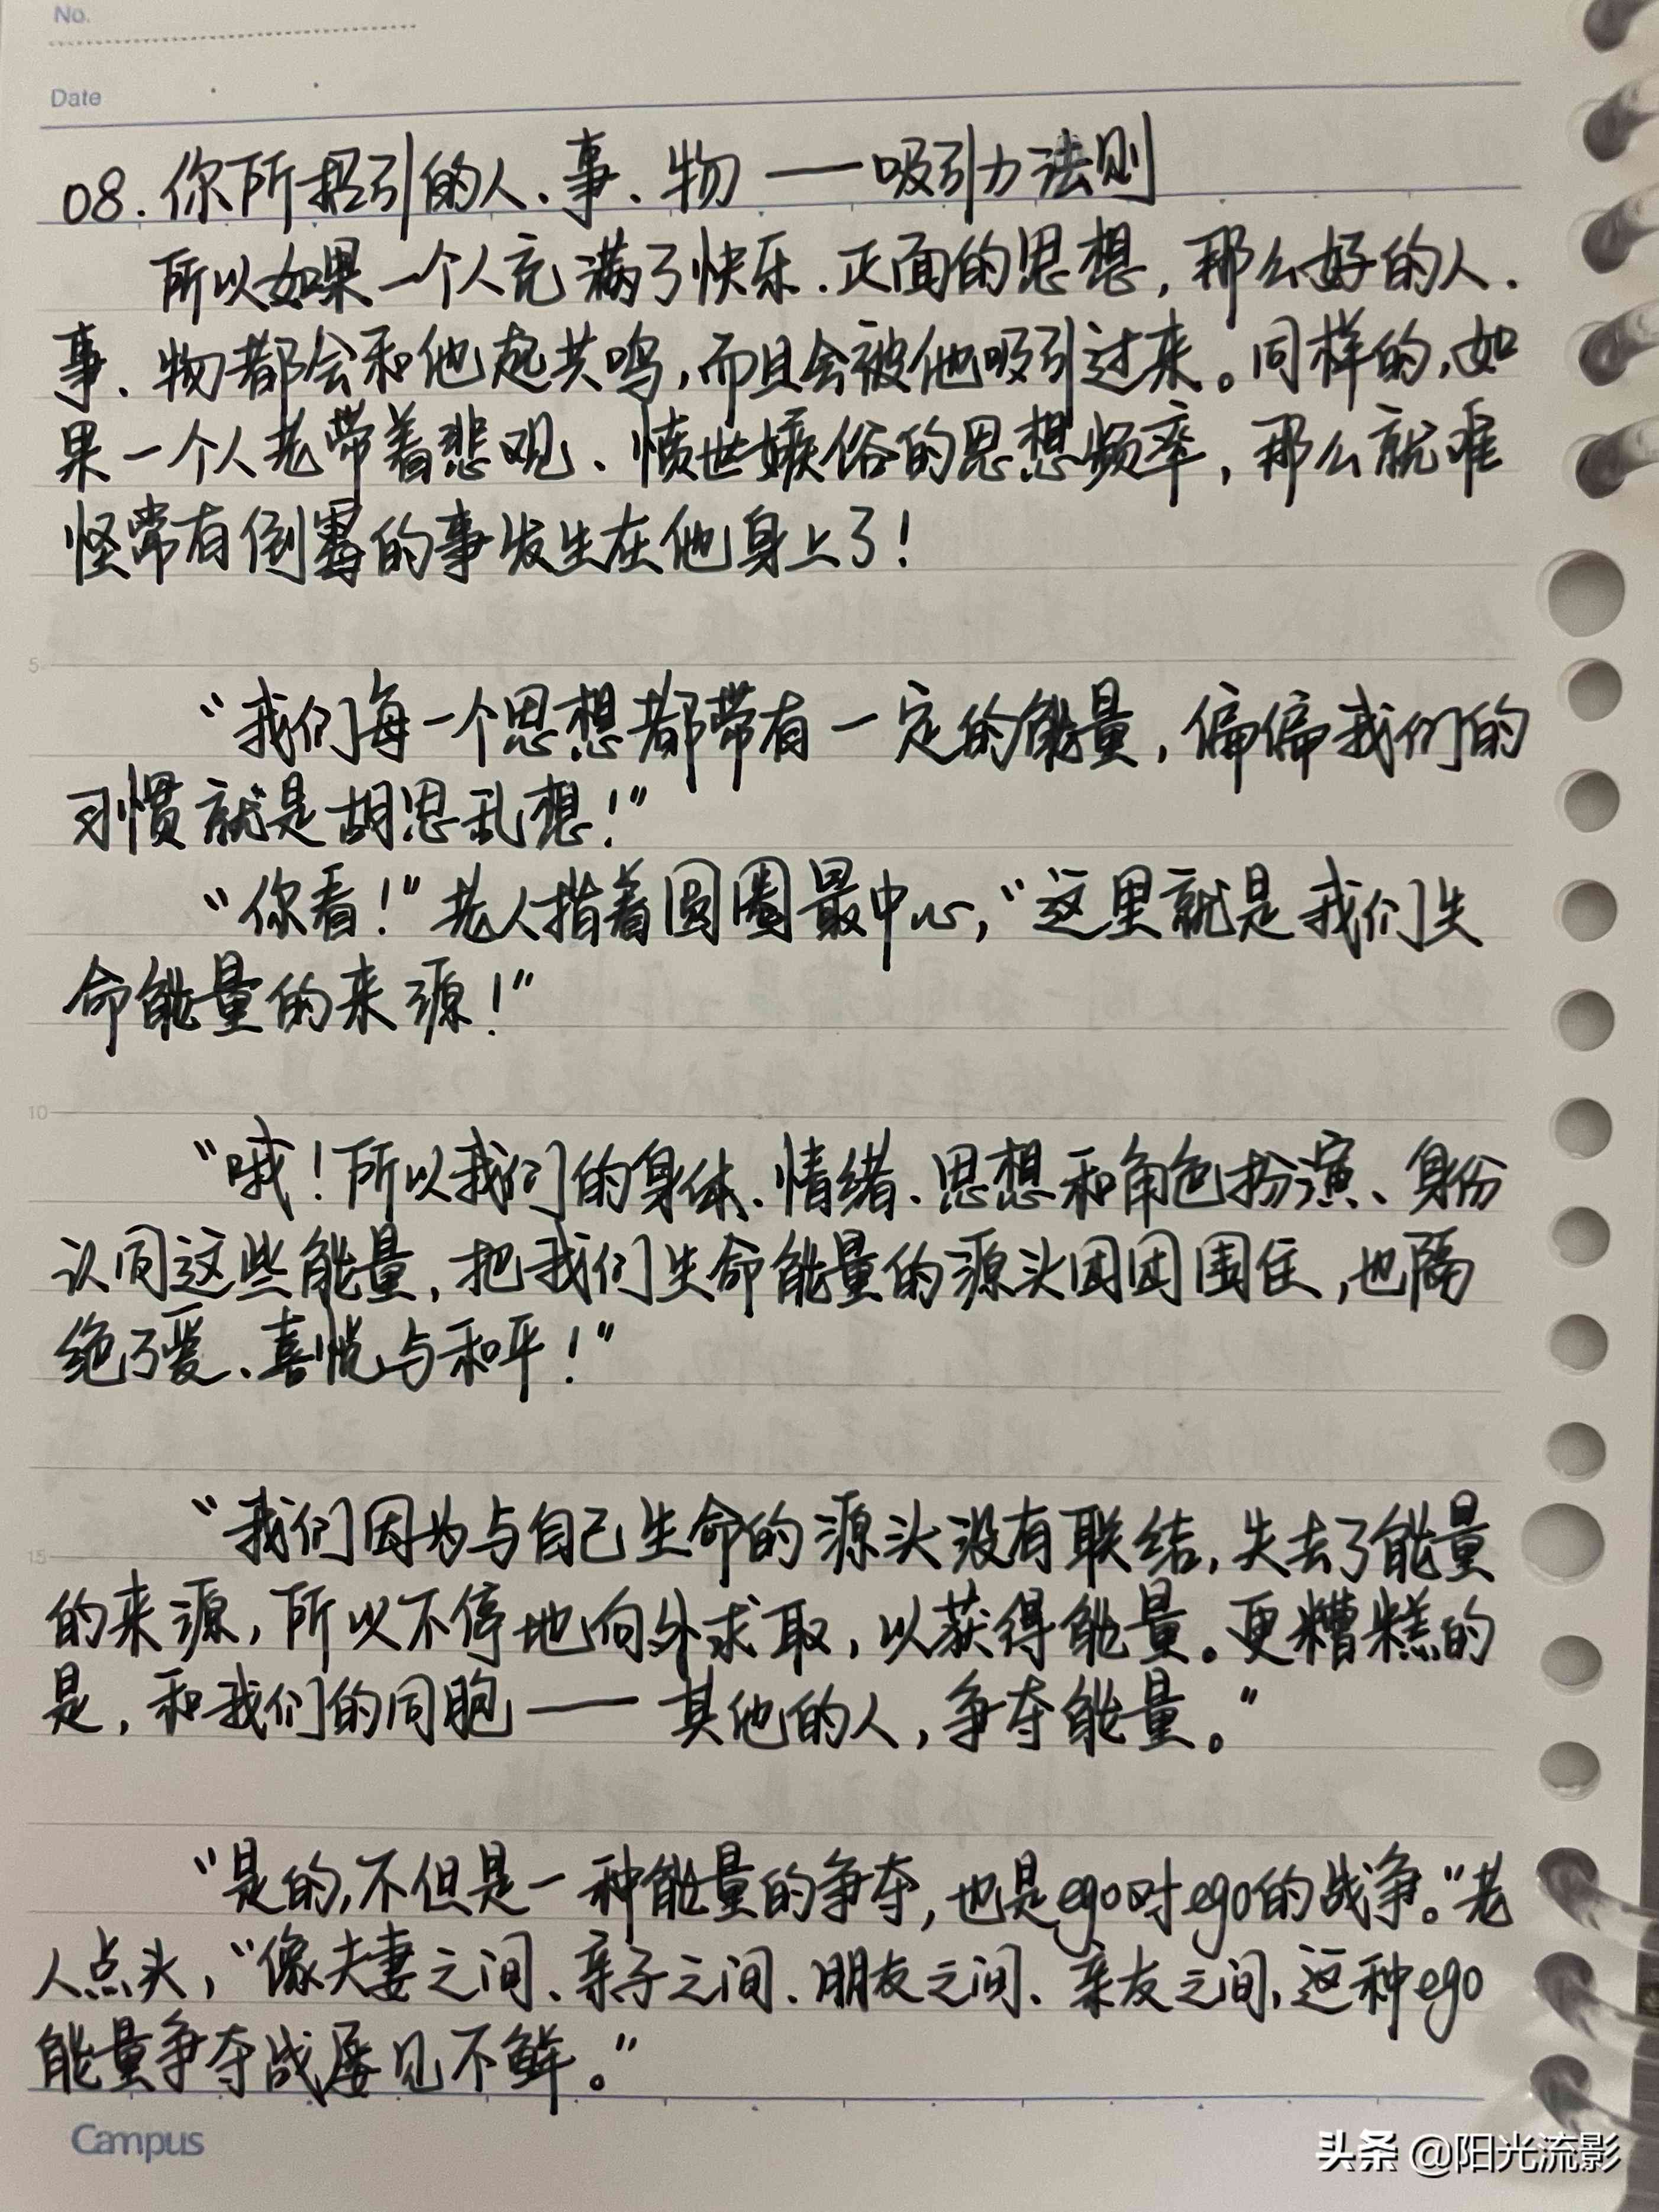 No.
Date
08. 你所招引的人、事、物——吸引力法则
所以如果一个人充满了快乐、正面的思想，那么好的人、
事、物都会和他起共鸣，而且会被他吸引过来。同样的，如
果一个人老带着悲观、愤世嫉俗的思想频率，那么就难
怪常有倒霉的事发生在他身上了！
5
“我们每一个思想都带有一定的能量，偏偏我们的
习惯就是胡思乱想！”
“你看！”老人指着圆圈最中心，“这里就是我们生
命能量的来源！”
10
“哦！所以我们的身体、情绪、思想和角色扮演、身份
认同这些能量，把我们生命能量的源头团团围住，也隔
绝了爱、喜悦与和平！”
“我们因为与自己生命的源头没有联结，失去了能量
15
的来源，所以不停地向外求取，以获得能量。更糟糕的
是，和我们的同胞——其他的人，争夺能量。”
“是的，不但是一种能量的争夺，也是ego对ego的战争。”老
人点头，“像夫妻之间、亲子之间、朋友之间、亲友之间，这种ego
能量争夺战屡见不鲜。”
Campus
头条 @阳光流影